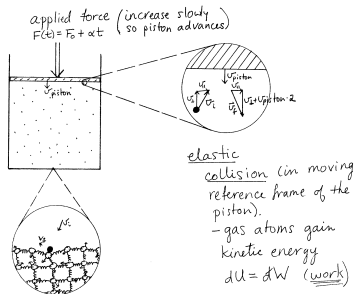 applied force (increase slowly
F(t) = F₀ + αt so piston advances)
v piston
v piston
v⊥
v∥
v i
v∥
v f
v⊥+v piston·2
elastic
collision (in moving
reference frame of the
piston).
- gas atoms gain
kinetic energy
dU = đW (work)
v i